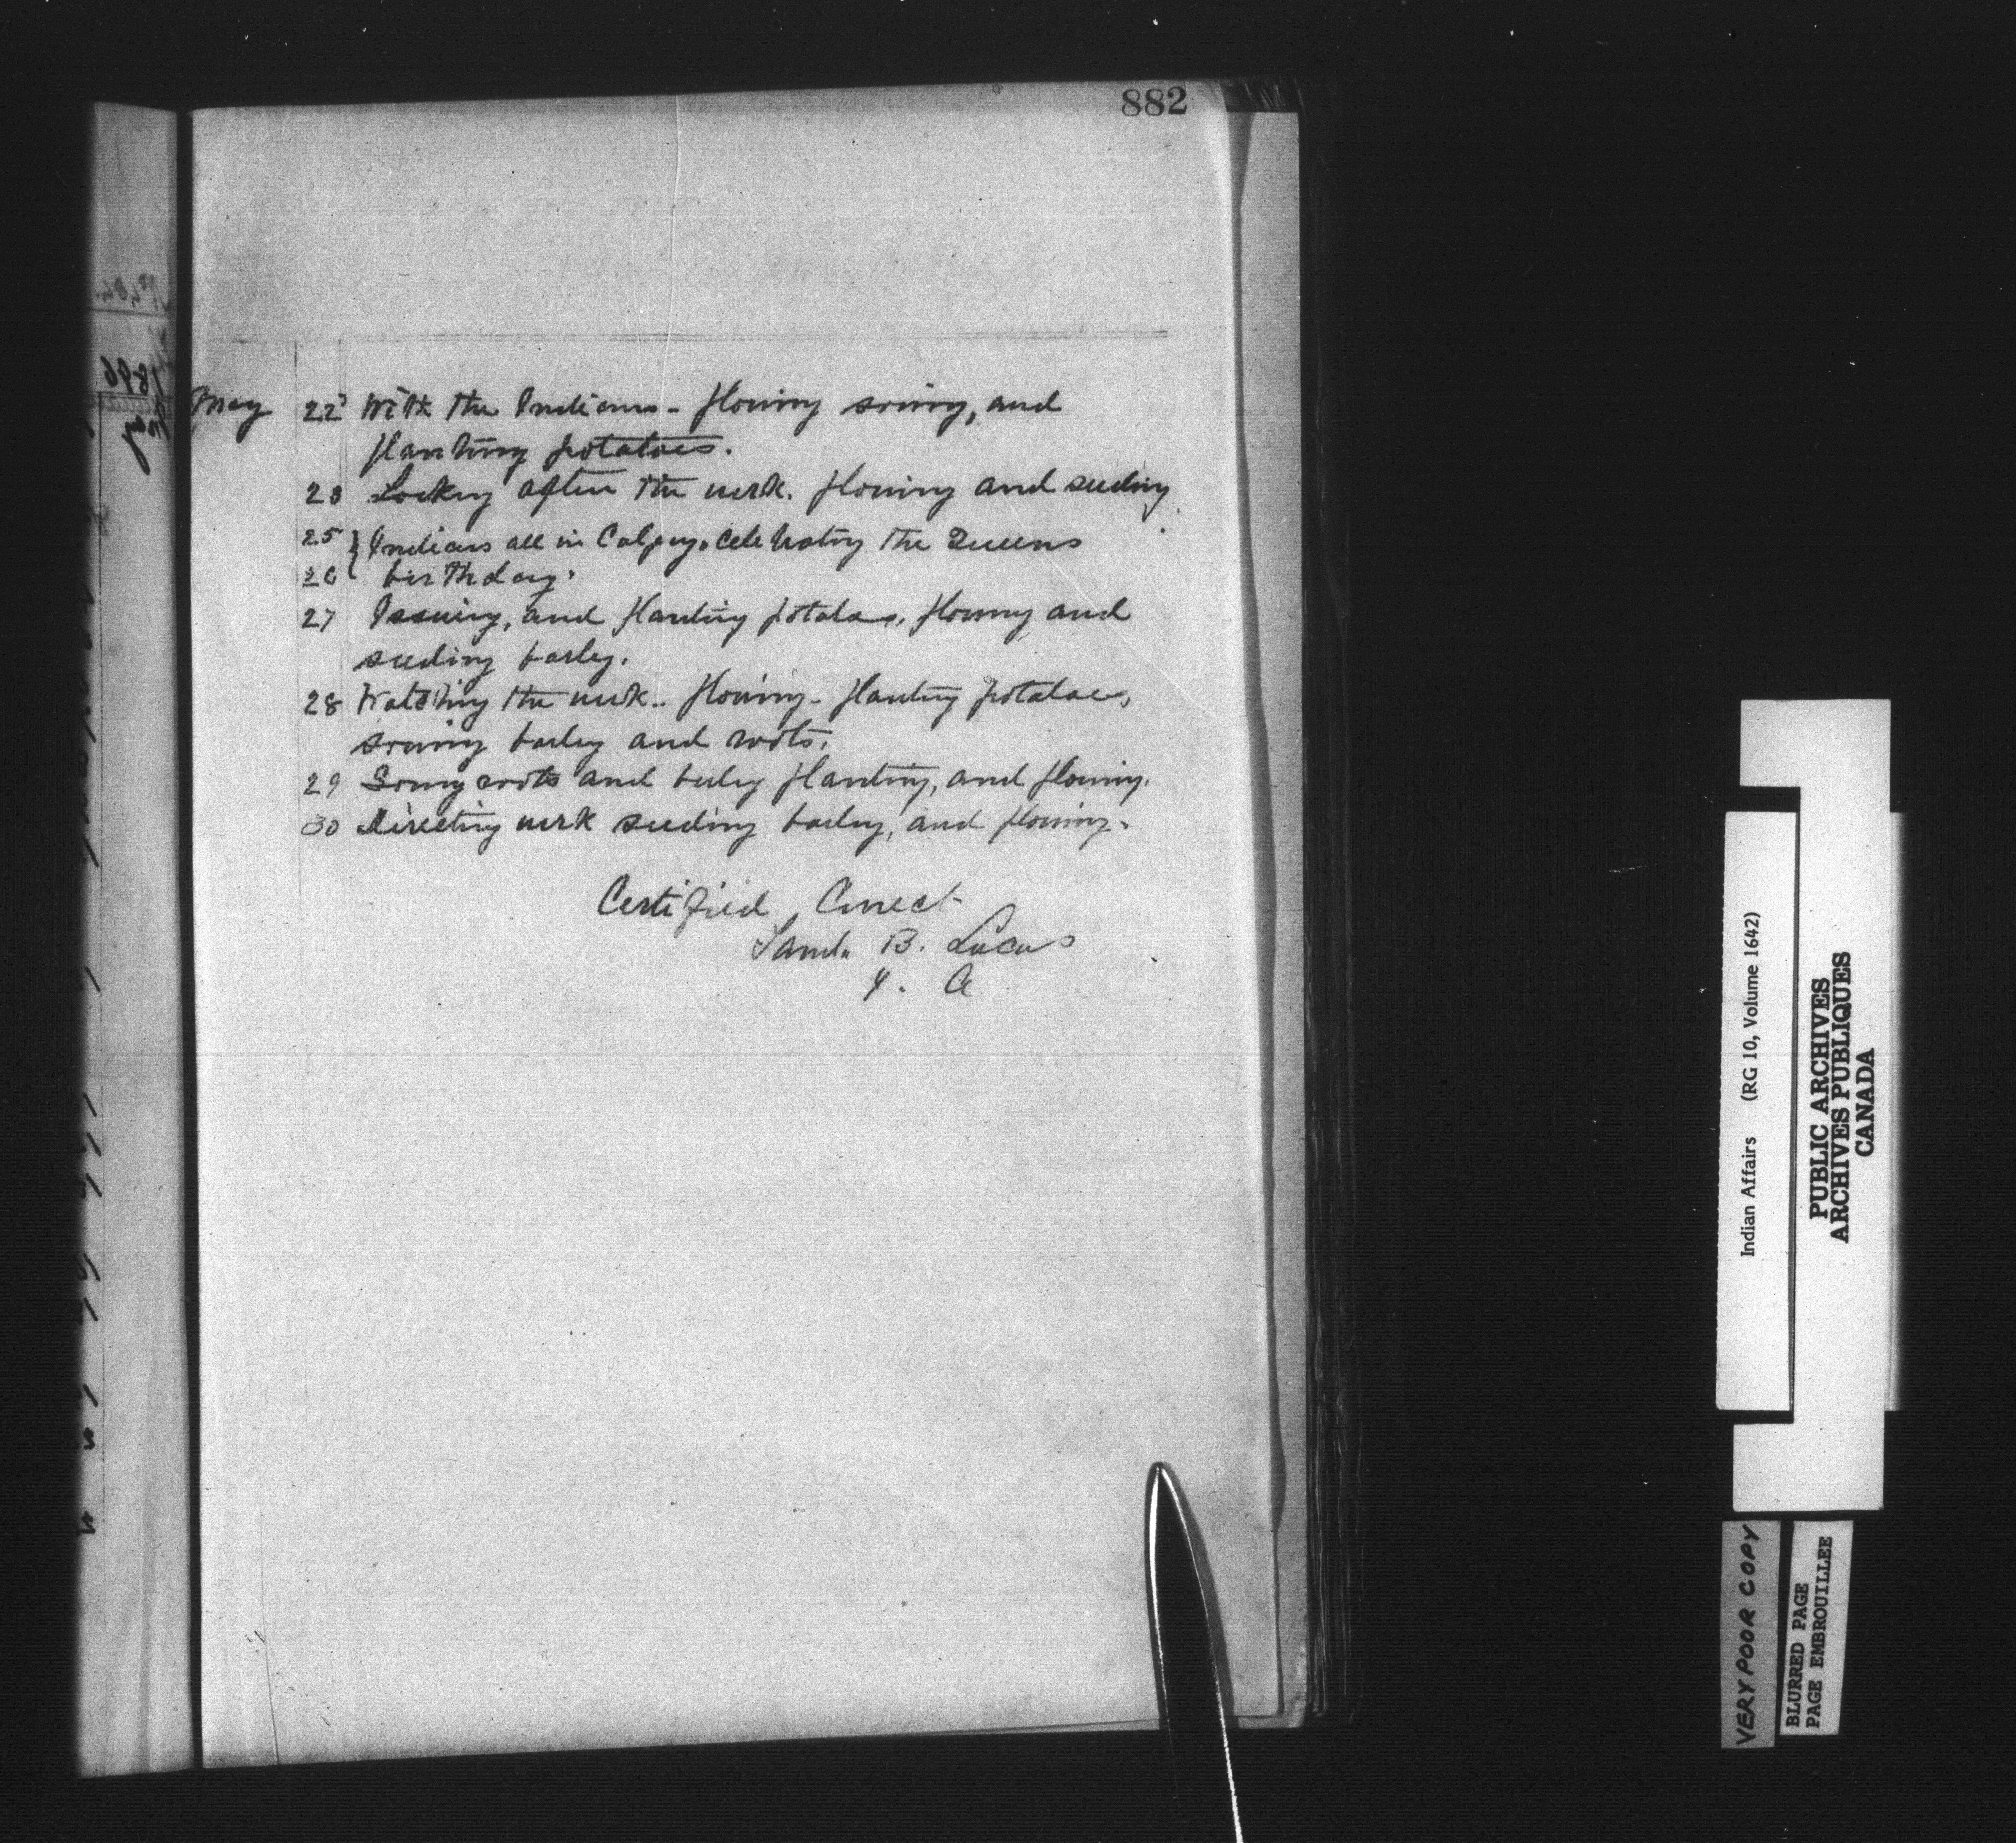 882
May 22 With the Indians - plowing sowing, and
planting potatoes.
23 Looking after the work. plowing and seeding
25 } Indians all in Calgary. Celebrating the Queens
26 birthday.
27 Issuing, and planting potatoes, plowing and
seeding barley.
28 Watching the work.. plowing - planting potatoes,
sowing barley and roots.
29 Sowing roots and barley planting, and plowing.
30 Directing work seeding barley, and plowing.
Certified Correct
Saml. B. Lucas
1896
Indian Affairs (RG 10, Volume 1642)
PUBLIC ARCHIVES
ARCHIVES PUBLIQUES
CANADA
VERY POOR COPY
BLURRED PAGE
PAGE EMBROUILLEE